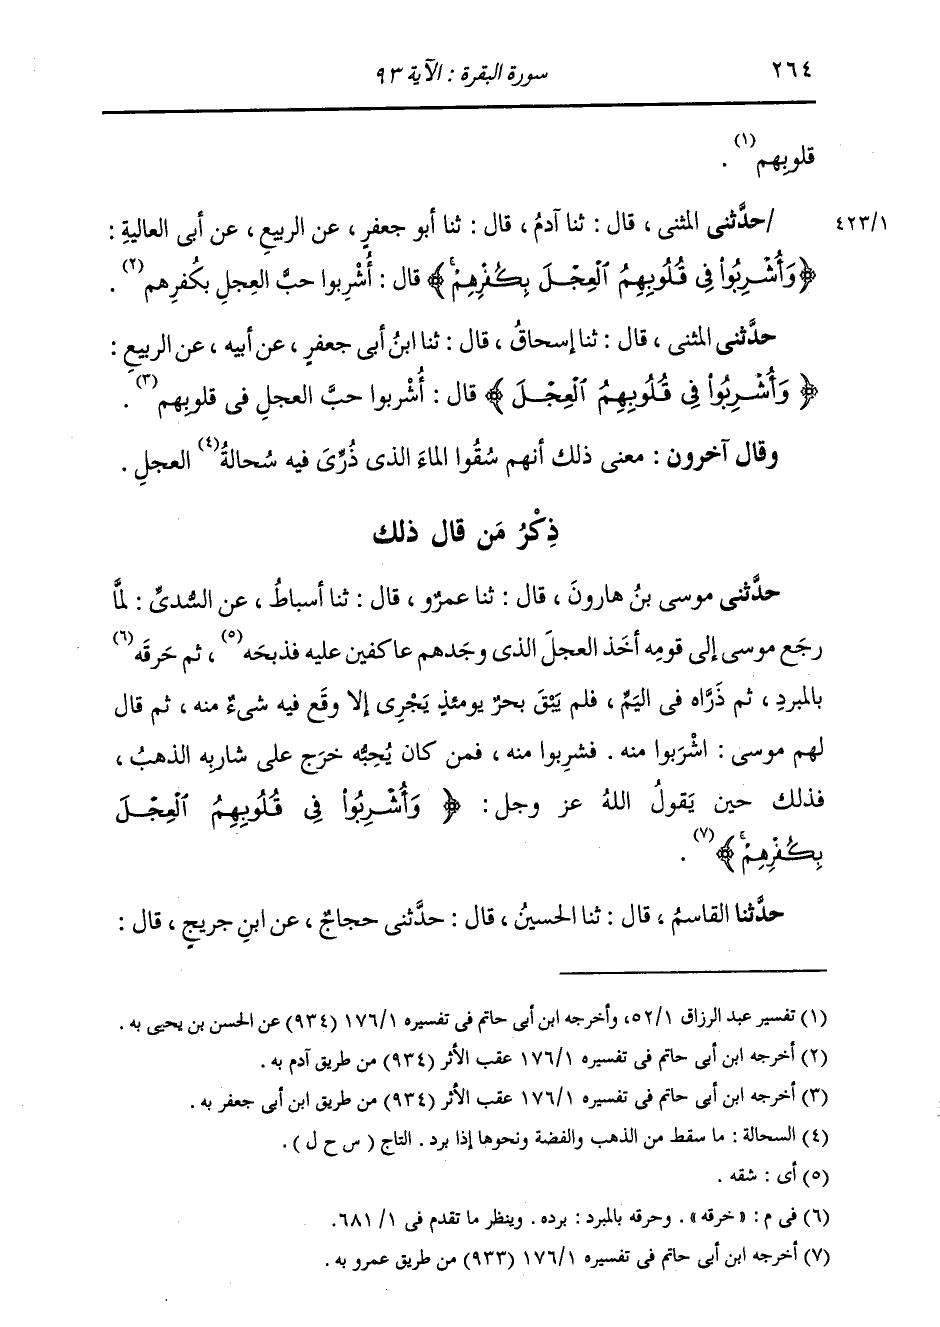 ٢٦٤ سورة البقرة : الآية ٩٣
قلوبِهم(١) .
٤٢٣/١ /حدَّثنى المثنى ، قال : ثنا آدمُ ، قال : ثنا أبو جعفرٍ ، عن الربيعِ ، عن أبى العاليةِ :
﴿وَأُشْرِبُوا۟ فِى قُلُوبِهِمُ ٱلْعِجْلَ بِكُفْرِهِمْۚ﴾ قال : أُشْرِبوا حبَّ العِجلِ بكفرِهم(٢) .
حدَّثنى المثنى ، قال : ثنا إسحاقُ ، قال : ثنا ابنُ أبى جعفرٍ ، عن أبيه ، عن الربيعِ :
﴿وَأُشْرِبُوا۟ فِى قُلُوبِهِمُ ٱلْعِجْلَ﴾ قال : أُشْرِبوا حبَّ العجلِ فى قلوبِهم(٣) .
وقال آخرون : معنى ذلك أنهم سُقُوا الماءَ الذى ذُرِّىَ فيه سُحالةُ(٤) العجلِ .
ذِكْرُ مَن قال ذلك
حدَّثنى موسى بنُ هارونَ ، قال : ثنا عمرٌو ، قال : ثنا أسباطُ ، عن السُّدىِّ : لمَّا
رجَع موسى إلى قومِه أخَذ العجلَ الذى وجَدهم عاكفين عليه فذبحَه(٥) ، ثم حَرقَه(٦)
بالمبردِ ، ثم ذَرَّاه فى اليَمِّ ، فلم يَبْقَ بحرٌ يومئذٍ يَجْرِى إلا وقَع فيه شىءٌ منه ، ثم قال
لهم موسى : اشْرَبوا منه . فشرِبوا منه ، فمن كان يُحِبُّه خرَج على شاربِه الذهبُ ،
فذلك حين يَقولُ اللهُ عز وجل : ﴿وَأُشْرِبُوا۟ فِى قُلُوبِهِمُ ٱلْعِجْلَ
بِكُفْرِهِمْۚ﴾(٧) .
حدَّثنا القاسمُ ، قال : ثنا الحسينُ ، قال : حدَّثنى حجاجٌ ، عن ابنِ جريجٍ ، قال :
(١) تفسير عبد الرزاق ٥٢/١، وأخرجه ابن أبى حاتم فى تفسيره ١٧٦/١ (٩٣٤) عن الحسن بن يحيى به .
(٢) أخرجه ابن أبى حاتم فى تفسيره ١٧٦/١ عقب الأثر (٩٣٤) من طريق آدم به .
(٣) أخرجه ابن أبى حاتم فى تفسيره ١٧٦/١ عقب الأثر (٩٣٤) من طريق ابن أبى جعفر به .
(٤) السحالة : ما سقط من الذهب والفضة ونحوها إذا برد . التاج ( س ح ل ) .
(٥) أى : شقه .
(٦) فى م : « خرقه » . وحرقه بالمبرد : برده . وينظر ما تقدم فى ١/ ٦٨١.
(٧) أخرجه ابن أبى حاتم فى تفسيره ١٧٦/١ (٩٣٣) من طريق عمرو به .